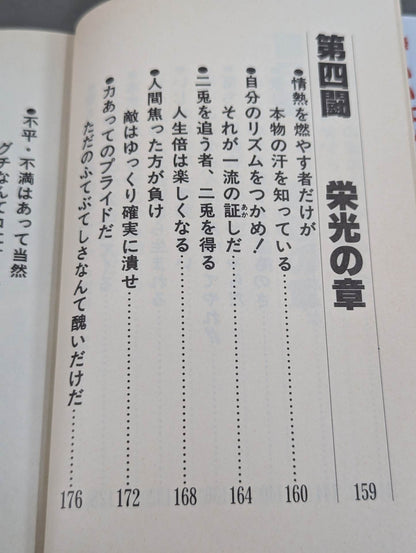 第四闘 栄光の章 159
●情熱を燃やす者だけが
本物の汗を知っている……160
●自分のリズムをつかめ！
それが一流の証しだ……164
あか
●二兎を追う者、二兎を得る
人生倍は楽しくなる……168
●人間焦った方が負け
敵はゆっくり確実に潰せ……172
●力あってのプライドだ
ただのふてぶてしさなんて醜いだけだ……176
●不平・不満はあって当然
グチなんて